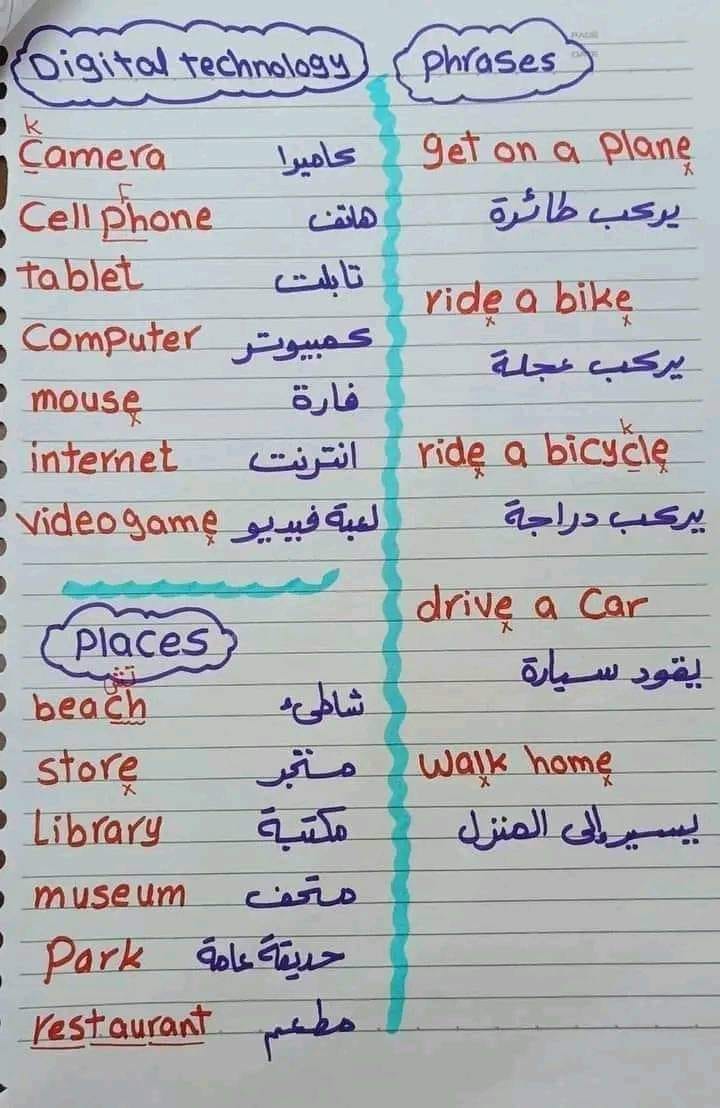 Digital technology
k
Camera كاميرا
ف
Cell phone هاتف
tablet تابلت
Computer كمبيوتر
mouse فارة
x
internet انترنت
video game لعبة فيديو
x
Places
تش
beach شاطىء
store متجر
x
Library مكتبة
museum متحف
Park حديقة عامة
restaurant مطعم
PAGE
DATE
Phrases
get on a plane
x
يركب طائرة
ride a bike
x x
يركب عجلة
k
ride a bicycle
x x
يركب دراجة
drive a Car
x
يقود سيارة
walk home
x x
يسير إلى المنزل